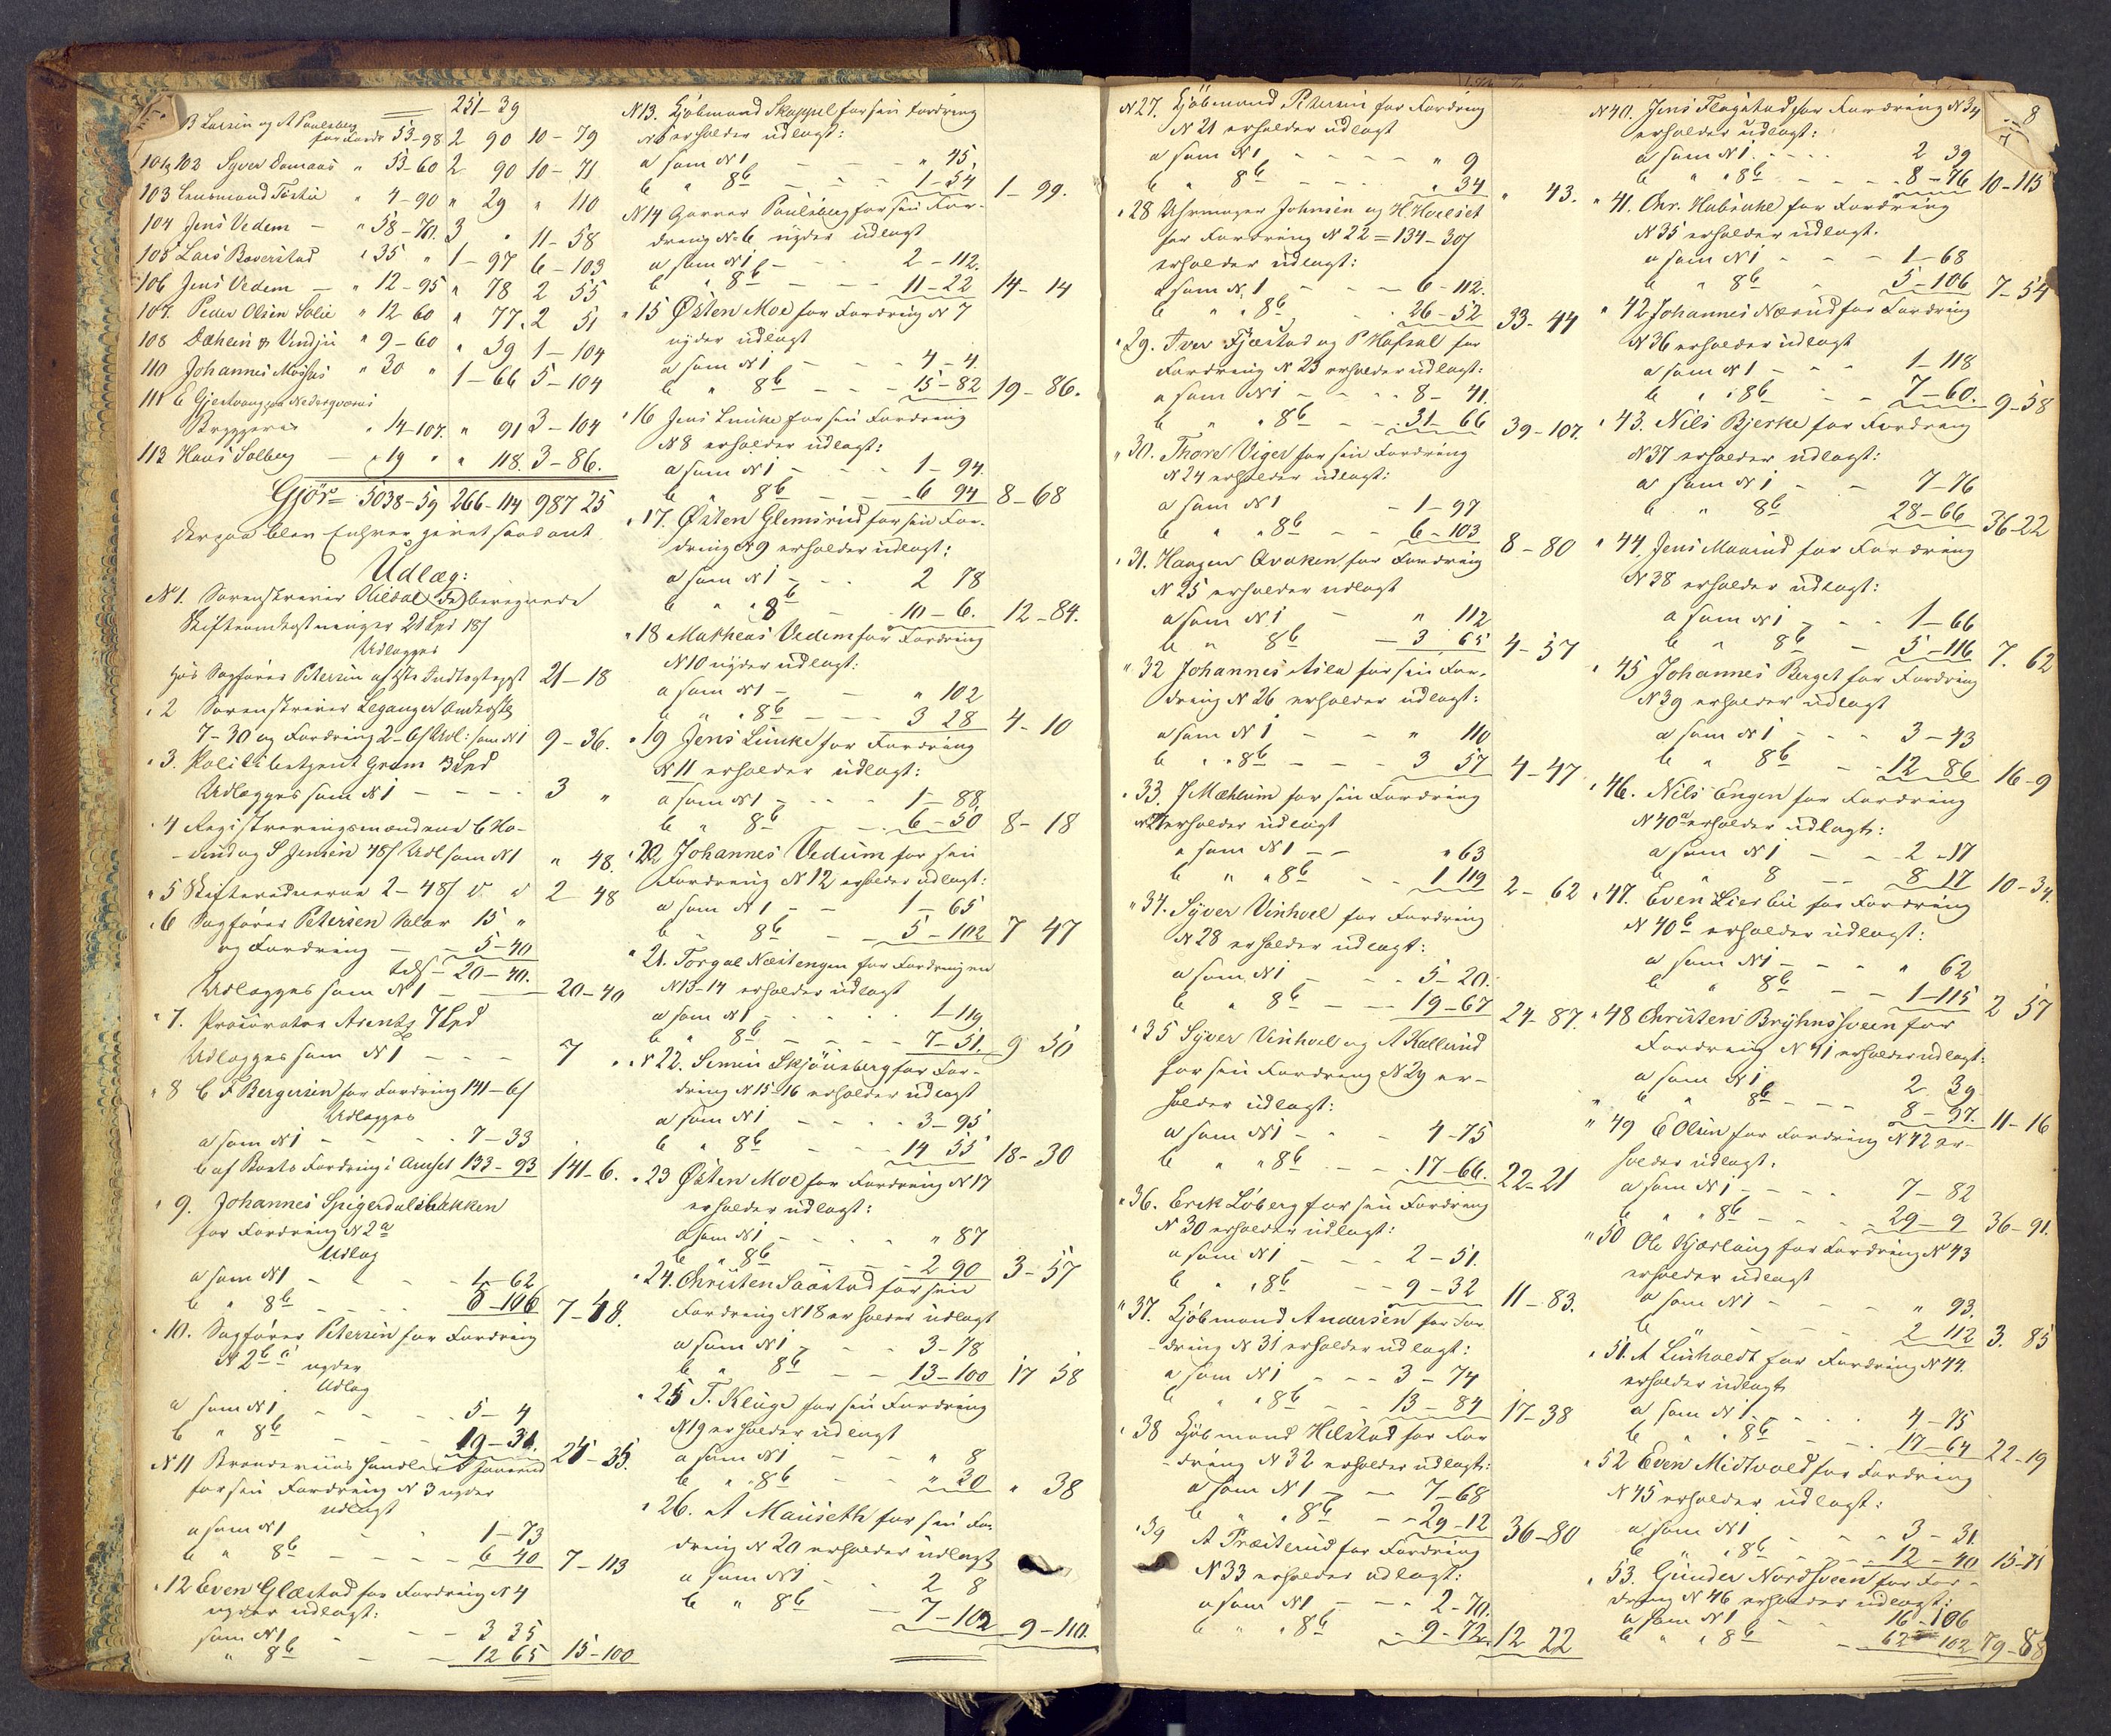 251-39
B Larsen og A Paulsberg
for Fordr 53-98 2 90 10-79
101 & 102 Syver Domaas " 53-60 2 90 10-71
103 Lensmand " 4-90 " 29 " 110
104 Jens Vedem - " 58-70. 3 " 11-58
105 Lars Baverstad " 35 " 1-97 6-103
106 Jens Vedem - " 12-95 " 78 2 55
107. Peder Olsen Solie " 12 60 " 77. 2 51
108 Dæhlin & Vindju " 9-60 " 39 1-104
110 Johannes " 30 " 1-66 5-104
111 E Gjestvang paa Nedreqværns
Bryggeri " 14-107. " 91 3-104
112 Hans Solberg - " 19 " " 118. 3-86.
Gjör = 5038-59 266-114 987 25
derpaa blev Enhver givet saadant
Udlæg:
No 1. Sorenskriver beregnede
Skifteomkostninger 21 Spd 18 s
Udlægges
hos Sagfører Petersen af Indtægtspost 21-18
" 2 Sorenskriver Leganger
7-30 og Fordring 2-6 s Udl: som N 1 9-36.
" 3. Politibetjent Gram 3 Spd
Udlægges som N 1 - - - - 3 "
" 4 Registreringsmændene
og S Jensen 48 s Udl som N 1 " 48.
" 5 Skiftevidnerne 2-48 s d d 2-48
" 6 Sagfører Petersen Salær 15 "
og Fordring - - 5-40
tils 20-40.
Udlægges som N 1 - - 20-40
" 7. Procurator Arentz 7 Spd
Udlægges som N 1 - - - 7 "
" 8 C F Bergersen for Fordring 141-6 s
Udlægges
a som N 1 - - - - 7-33
b af Boets Fordring i 133-93 141-6.
" 9. Johannes Spigerdalsbakken
for Fordring N 2 a
Udlæg
a som N 1 - - - 1-62
b " 8 b - - - - 5-106 7-48.
" 10. Sagfører Petersen for Fordring
N 2 b c nyder
Udlæg
a som N 1 - - - - 5-4
b " 8 b - - - 19-31. 24-35.
N 11 Brændeviinshandler
for sin Fordring N 3 nyder
udlagt
a som N 1 - - - 1-73
b " 8 b - - - - 6 40 7-113
" 12 Even Glæstad for Fordring N 4
nyder udlagt:
som N 1 - - - 3 35
" 8 b - - 12 65 15-100
N 13. Kjøbmand Skappel for sin Fordring
erholder udlagt:
a som N 1 - - - - " 45.
b " 8 b - - - 1-54 1-99.
N 14 Garver Paulsberg for sin For-
dring N 6 nyder udlagt
a som N 1 - - - 2-112.
b " 8 b - - - 11-22 14-14
" 15 Østen Moe for Fordring N 7
nyder udlagt
a som N 1 - - - 4-4.
b " 8 b - - - 15-82 19-86.
" 16 Jens Linke for sin Fordring
N 8 erholder udlagt:
a som N 1 - - - 1-94.
b " 8 b - - - 6 94 8-68
" 17. Østen Glemsrud for sin For-
dring N 9 erholder udlagt:
a som N 1 - - - 2 78
b " " 8 b - - 10-6. 12-84.
" 18 Matheas Vedem for Fordring
N 10 nyder udlagt:
a som N 1 - - " 102
b " " 8 b - - - 3 28 4-10
" 19 Jens Linke for Fordring
N 11 erholder udlagt:
a som N 1 - - - - 1-88.
b " 8 b - - - 6-50 8-18
" 20 Johannes Vedum for sin
Fordring N 12 erholder udlagt:
a som N 1 - - 1-65
b - 8 b - - 5-102 7 47
" 21. Torgal Næstengen for Fordringen
N 13-14 erholder udlagt
a som N 1 - - - - 1-119
b " 8 b - - - 7-51. 9 50
" N 22. Simen Skjønsberg for For-
dring N 15-16 erholder udlagt
a som N 1 - - - - 3-95
b " 8 b - - - 14 55 18-30
" 23 Østen Moe for Fordring N 17
erholder udlagt:
a som N 1 - - - - " 87
b " 8 b - - - 2 90 3-57
" 24. Christen Saastad for sin
Fordring N 18 erholder udlagt
a som N 1 - - - 3-78
b " 8 b - - 13-100 17 58
" 25 T. Kluge for sin Fordring
N 19 erholder udlagt
a som N 1 - - " 8
b " " 8 b - - " 30 " 38
" 26. A Mauseth for sin For-
dring N 20 erholder udlagt
a som N 1 - - - 2 8
b " 8 b - - 7-102 9-110.
8
N 27. Kjøbmand Petersen for Fordring
N 21 erholder udlagt
a som N 1 - - - - " 9
b " 8 b - - - " 34 " 43.
" 28 Uhrmager Johnsen og H.
for Fordring N 22 = 134-30 s
erholder udlagt:
a som N. 1 - - - 6-112.
b " " 8 b - - 26-52 33-44
" 29. Iver Fjæstad og P Hafsal for
Fordring N 23 erholder udlagt:
a som N 1 - - - 8-41.
b " " 8 b - - 31-66 39-107.
" 30. Thore Viger for sin Fordring
N 24 erholder udlagt:
a som N 1 - 1-97
b " " 8 b - - 6-103 8-80
" 31. Haagen Qvaken for Fordring
N 25 erholder udlagt
a som N 1 - " 112
b " 8 b - 3 65 4-57
" 32 Johannes for sin For-
dring N 26 erholder udlagt:
a som N 1 - - " 110
b " " 8 b - - - 3 57 4-47
" 33. J Mæhlum for sin Fordring
N 27 erholder udlagt
a som N 1 - - " 63
b " " 8 b - - 1 119 2-62
" 34. Syver Vinhoel for Fordring
N 28 erholder udlagt:
a som N 1 - - - 5-20.
b " 8 b - - 19-67 24-87.
" 35 Syver Vinhoel og A Kallerud
for sin Fordring N 29 er-
holder udlagt:
a som N 1 - - - 4-75
b " " 8 b - - - 17-66. 22-21
" 36. Erik Løberg for sin Fordring
N 30 erholder udlagt:
a som N 1 - - - 2-51.
b " " 8 b - - 9-32 11-83.
" 37. Kjøbmand Andersen for For
-dring N 31 erholder udlagt:
a som N 1 - - - 3-74
b " 8 b - - 13-84 17-38
" 38 Kjøbmand Helstad for For
-dring N 32 erholder udlagt:
a som N 1 - - 7-68
b " " 8 b - - 29-12 36-80
" 39 A Præsterud for Fordring
N 33 erholder udlagt:
a som N 1 - - - 2-70.
b " " 8 b - 9-72. 12 22
N 40. Jens Flagstad for Fordring N 34
erholder udlagt:
a som N 1. - - - 2 39
b " " 8 b - - - 8-76 10-115
" 41. Chr. for Fordring
N 35 erholder udlagt.
a som N 1 - - - 1-68
b " 8 b - - 5-106 7-54
" 42 Johannes Næsrud for Fordring
N 36 erholder udlagt
a som N 1 - - - 1-118
b " " 8 b - - 7-60. 9-58
" 43. Nils Bjerke for Fordring
N 37 erholder udlagt:
a som N 1 - - 7-76
b " 8 b 28-66 36-22
" 44. Jens Maurud for Fordring
N 38 erholder udlagt:
a som N 1 - - - 1-66
b " 8 b - 5-116 7. 62
" 45 Johannes Berget for Fordring
N 39 erholder udlagt
a som N 1 - - - 3-43
b " 8 b - - 12 86 16-9
" 46. Nils Engen for Fordring
N 40 a erholder udlagt:
a som N 1 - - 2-17
b " 8 - - 8 17 10-34.
" 47. Even Lierbu for Fordring
N 40 b erholder udlagt:
a som N 1 - - - " 62
b " 8 b - - 1-115 2 57
" 48 Christen Bryhnssveen for
Fordring N 41 erholder udlagt:
a som N 1 2 39
b " 8 b - - - 8-97. 11-16
" 49 E Olsen for Fordring N 42 er-
holder udlagt.
a som N 1 - - - - 7-82
b " " 8 b - - - 29-9 36-91.
" 50 Ole Kjærlang for Fordring N 43
erholder udlagt
a som N 1 - - - " 93.
b - - - 2 112 3. 85
" 51. A Linholdt for Fordring N 44.
erholder udlagt
a som N 1 - - - - 4-75
b " " 8 b - - 17-64 22-19
" 52 Even Midtvold for Fordring
N 45 erholder udlagt:
a som N 1 - - - 3-31.
b " " 8 b - - - 12-40 15-71
" 53. Gunder Nordsveen for For-
dring N 46 erholder udlagt:
a som N 1 - - 16-106
b " " 8 b - 62 102 79-88